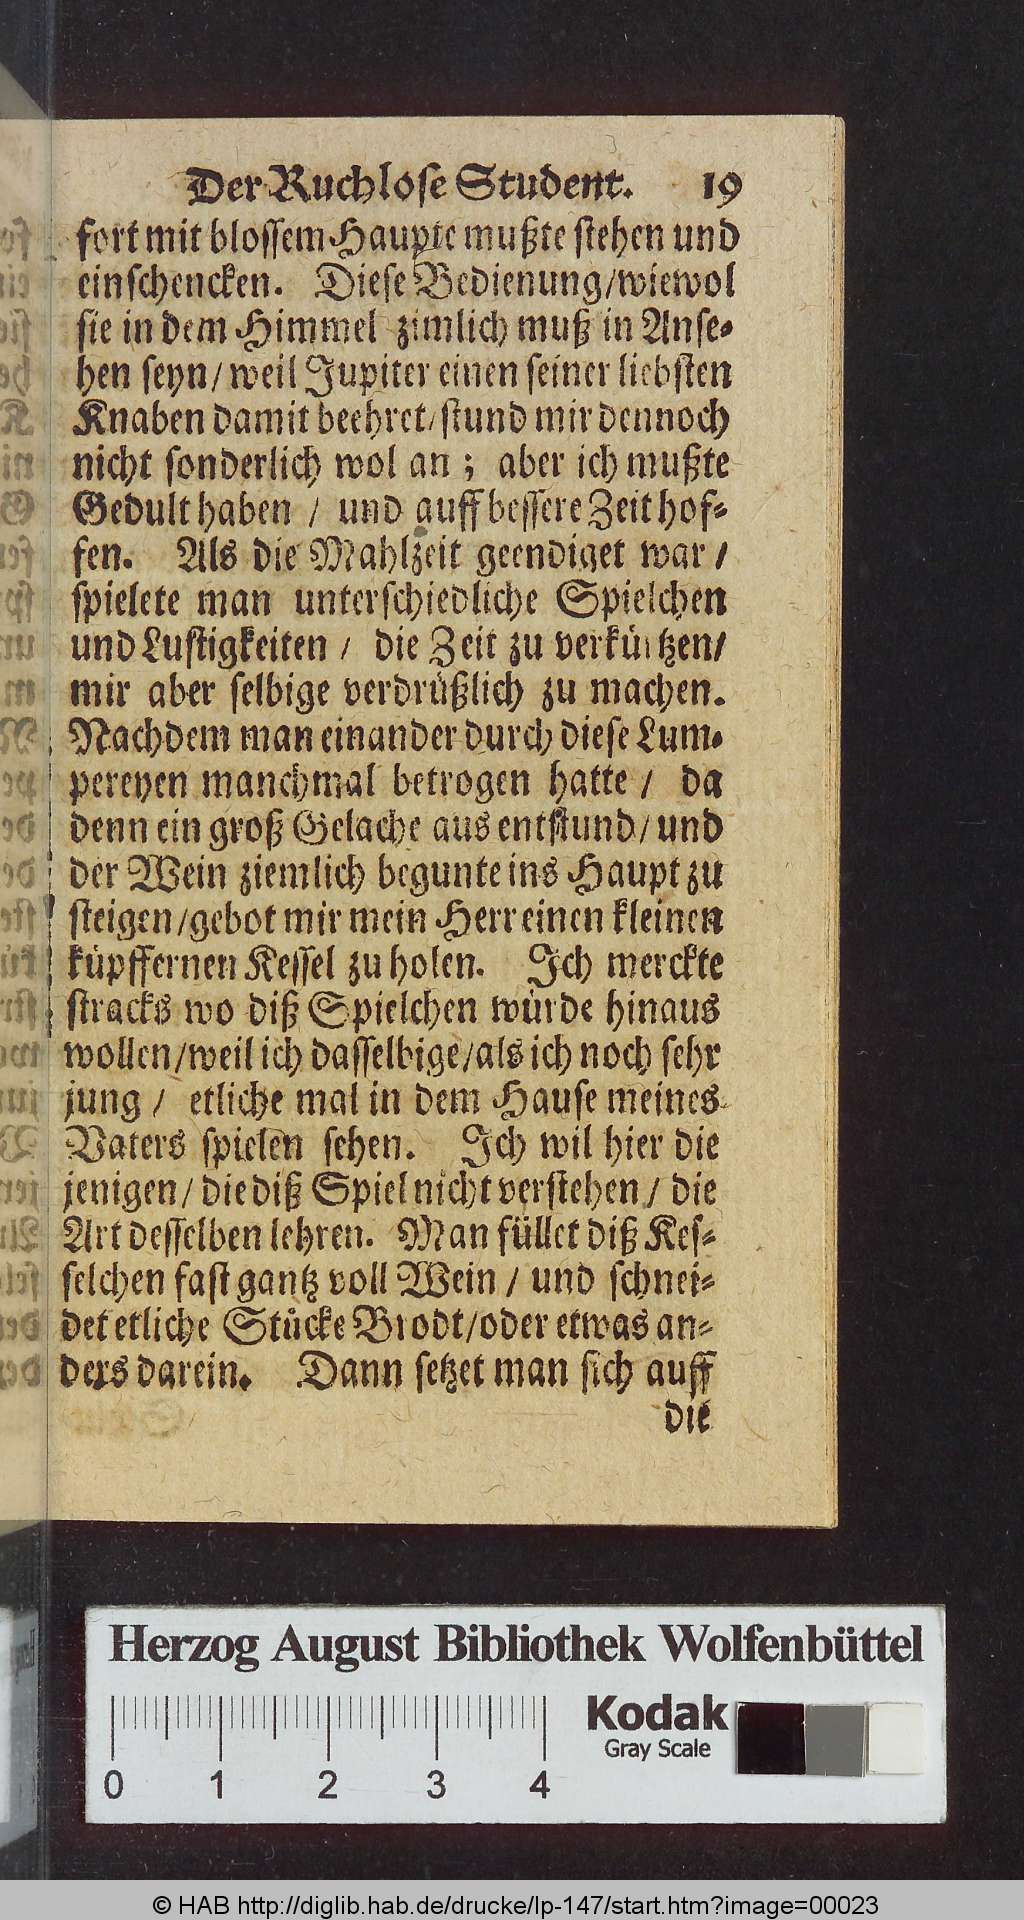 Der Ruchlose Student. 19
fort mit blossem Haupte mußte stehen und
einschencken. Diese Bedienung/wiewol
sie in dem Himmel zimlich muß in Anse-
hen seyn/weil Jupiter einen seiner liebsten
Knaben damit beehret/stund mir dennoch
nicht sonderlich wol an; aber ich mußte
Gedult haben / und auff bessere Zeit hof-
fen. Als die Mahlzeit geendiget war /
spielete man unterschiedliche Spielchen
und Lustigkeiten / die Zeit zu verkürtzen/
mir aber selbige verdrüßlich zu machen.
Nachdem man einander durch diese Lum-
pereyen manchmal betrogen hatte / da
denn ein groß Gelache aus entstund/und
der Wein ziemlich begunte ins Haupt zu
steigen/gebot mir mein Herr einen kleinen
küpffernen Kessel zu holen. Ich merckte
stracks wo diß Spielchen würde hinaus
wollen/weil ich dasselbige/als ich noch sehr
jung / etliche mal in dem Hause meines
Vaters spielen sehen. Ich wil hier die
jenigen/die diß Spiel nicht verstehen/ die
Art desselben lehren. Man füllet diß Kes-
selchen fast gantz voll Wein / und schnei-
det etliche Stücke Brodt/oder etwas an-
ders darein. Dann setzet man sich auff
die
Herzog August Bibliothek Wolfenbüttel
Kodak
Gray Scale
0 1 2 3 4
© HAB http://diglib.hab.de/drucke/lp-147/start.htm?image=00023